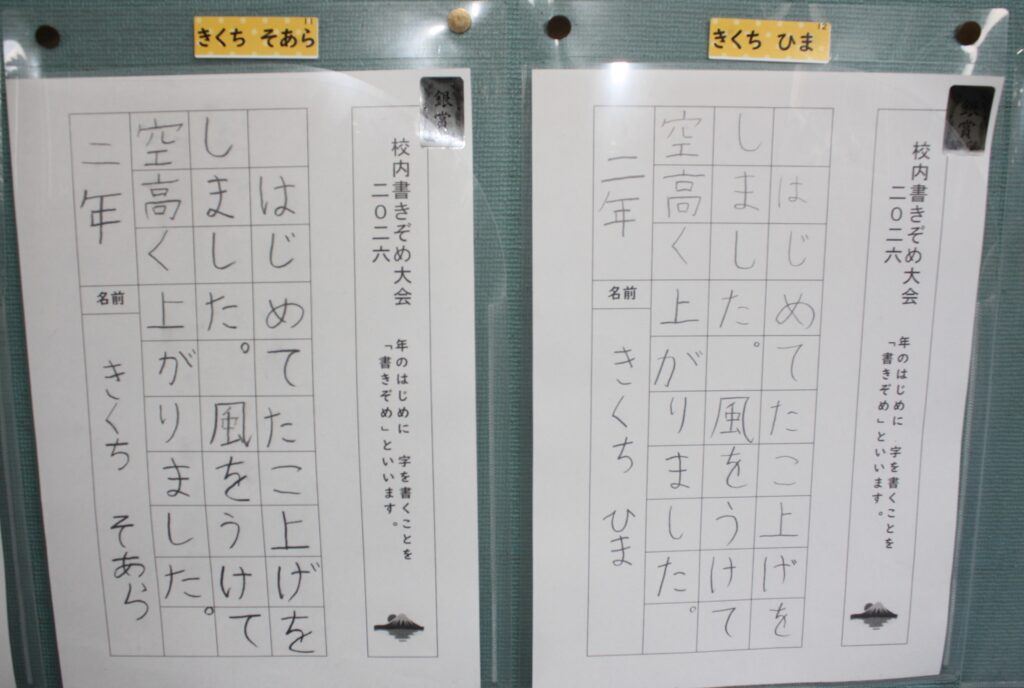 11
きくち そあら
銀賞
校内書きぞめ大会
二〇二六
年のはじめに 字を書くことを
「書きぞめ」といいます。
はじめてたこ上げを
しました。風をうけて
空高く上がりました。
二年
名前
きくち そあら
12
きくち ひま
銀賞
校内書きぞめ大会
二〇二六
年のはじめに 字を書くことを
「書きぞめ」といいます。
はじめてたこ上げを
しました。風をうけて
空高く上がりました。
二年
名前
きくち ひま